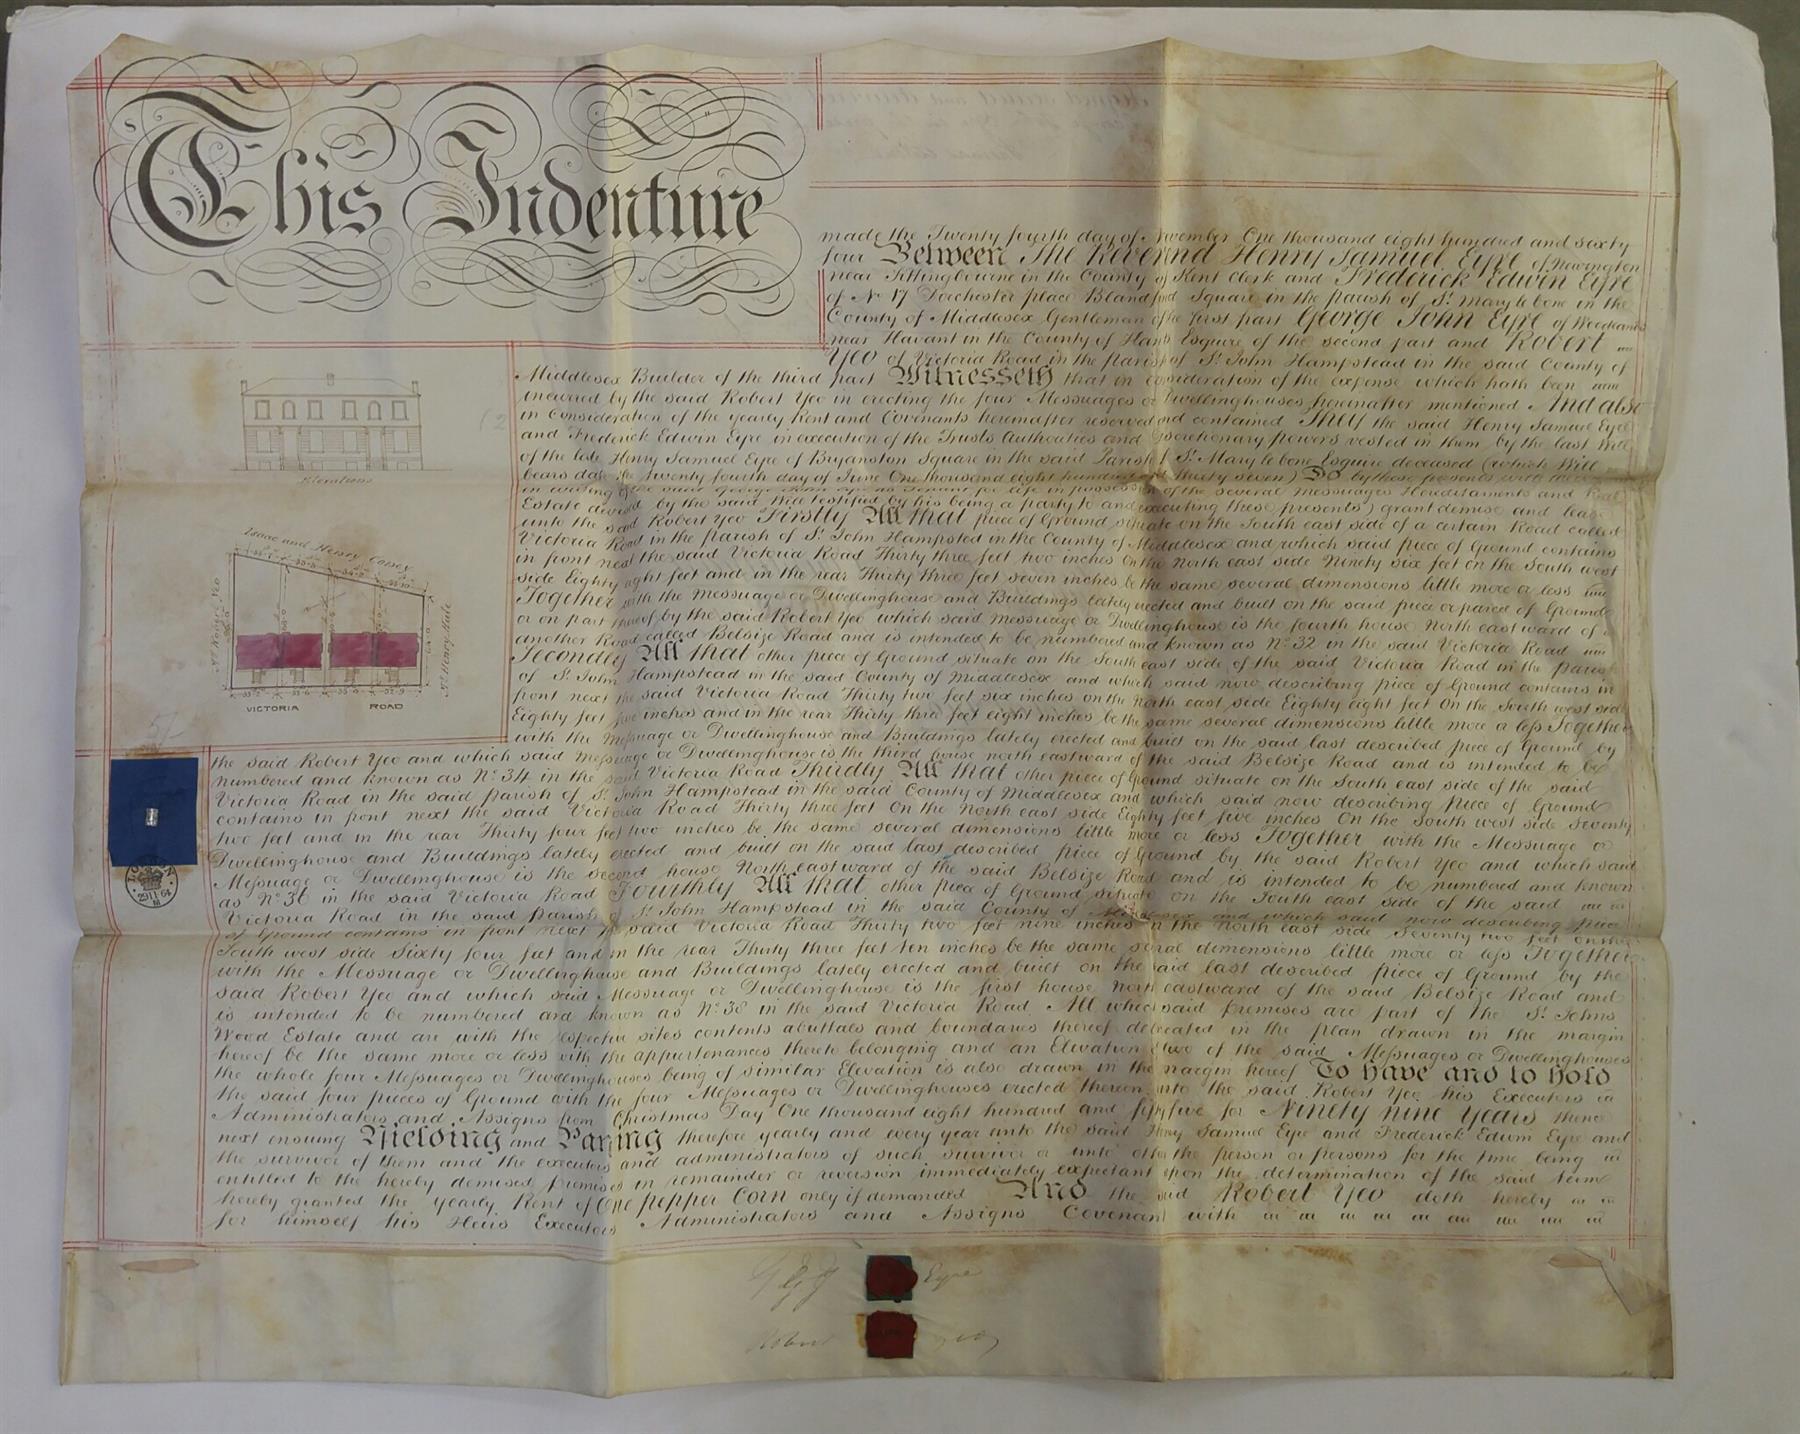 This Indenture
made the Twenty fourth day of November One thousand eight hundred and sixty
four Between The Reverend Henry Samuel Eyre of Newington
near Sittingbourne in the County of Kent Clerk and Frederick Edwin Eyre
of No 17 Dorchester place Blandford Square in the parish of St Mary le bone in the
County of Middlesex Gentleman of the first part George John Eyre of Woodlands
near Havant in the County of Hants Esquire of the second part and Robert
Yeo of Victoria Road in the Parish of St John Hampstead in the said County of
Middlesex Builder of the third part Witnesseth that in consideration of the expense which hath been
incurred by the said Robert Yeo in erecting the four Messuages or Dwellinghouses hereinafter mentioned And also
in Consideration of the yearly Rent and Covenants hereinafter reserved and contained They the said Henry Samuel Eyre
and Frederick Edwin Eyre in execution of the Trusts Authorities and discretionary powers vested in them by the last Will
of the late Henry Samuel Eyre of Bryanston Square in the said Parish of St Mary le bone Esquire deceased (which Will
bears date the Twenty fourth day of June One thousand eight hundred and thirty seven) Do by these presents with the
in writing of the said George John Eyre as Tenant for life in possession of the several Messuages Hereditaments and Real
Estate devised by the said Will testified by his being a party to and executing these presents) grant demise and lease
unto the said Robert Yeo Firstly All that piece of Ground situate on the South east side of a certain Road called
Victoria Road in the parish of St John Hampsted in the County of Middlesex and which said piece of Ground contains
in front next the said Victoria Road Thirty three feet two inches On the North east side Ninety six feet on the South west
side Eighty eight feet and in the rear Thirty three feet seven inches be the same several dimensions little more or less
Together with the Messuage or Dwellinghouse and Buildings lately erected and built on the said piece or parcel of Ground
or on part thereof by the said Robert Yeo which said Messuage or Dwellinghouse is the fourth house North eastward of a
another Road called Belsize Road and is intended to be numbered and known as No 32 in the said Victoria Road
Secondly All that other piece of Ground situate on the South east side of the said Victoria Road in the parish
of St John Hampstead in the said County of Middlesex and which said now describing piece of Ground contains in
front next the said Victoria Road Thirty two feet six inches on the North east side Eighty eight feet On the South west side
Eighty feet five inches and in the rear Thirty three feet eight inches be the same several dimensions little more or less Together
with the Messuage or Dwellinghouse and Buildings lately erected and built on the said last described piece of Ground by
the said Robert Yeo and which said Messuage or Dwellinghouse is the third house north eastward of the said Belsize Road and is intended to be
numbered and known as No 34 in the said Victoria Road Thirdly All that other piece of Ground situate on the South east side of the said
Victoria Road in the said parish of St John Hampstead in the said County of Middlesex and which said now describing piece of Ground
contains in front next the said Victoria Road Thirty three feet On the North east side Eighty feet five inches On the South west side Seventy
two feet and in the rear Thirty four feet two inches be the same several dimensions little more or less Together with the Messuage or
Dwellinghouse and Buildings lately erected and built on the said last described piece of Ground by the said Robert Yeo and which said
Messuage or Dwellinghouse is the second house North eastward of the said Belsize Road and is intended to be numbered and known
as No 36 in the said Victoria Road Fourthly All that other piece of Ground situate on the South east side of the said
Victoria Road in the said Parish of St John Hampstead in the said County of Middlesex and which said now describing piece
of Ground contains in front next the said Victoria Road Thirty two feet nine inches on the North east side Seventy two feet on the
South west side Sixty four feet and in the rear Thirty three feet ten inches be the same several dimensions little more or less Together
with the Messuage or Dwellinghouse and Buildings lately erected and built on the said last described piece of Ground by the
said Robert Yeo and which said Messuage or Dwellinghouse is the first house north eastward of the said Belsize Road and
is intended to be numbered and known as No 38 in the said Victoria Road All which said premises are part of the St Johns
Wood Estate and are with the respective sites contents abuttals and boundaries thereof delineated in the plan drawn in the margin
hereof be the same more or less with the appurtenances thereto belonging and an Elevation of two of the said Messuages or Dwellinghouses
the whole four Messuages or Dwellinghouses being of similar Elevation is also drawn in the margin hereof To have and to hold
the said four pieces of Ground with the four Messuages or Dwellinghouses erected thereon unto the said Robert Yeo his Executors
Administrators and Assigns from Christmas Day One thousand eight hundred and fifty five for Ninety nine Years thence
next ensuing Yielding and Paying therefore yearly and every year unto the said Henry Samuel Eyre and Frederick Edwin Eyre and
the survivor of them and the executors and administrators of such survivor or unto other the person or persons for the time being
entitled to the hereby demised premises in remainder or reversion immediately expectant upon the determination of the said term
hereby granted the yearly Rent of One pepper Corn only if demanded And the said Robert Yeo doth hereby
for himself his Heirs Executors Administrators and Assigns Covenant with
Elevations
Isaac and Henry Corsey
Mr Robert Yeo
VICTORIA ROAD
5/-
LONDON
Eyre
Robert Yeo